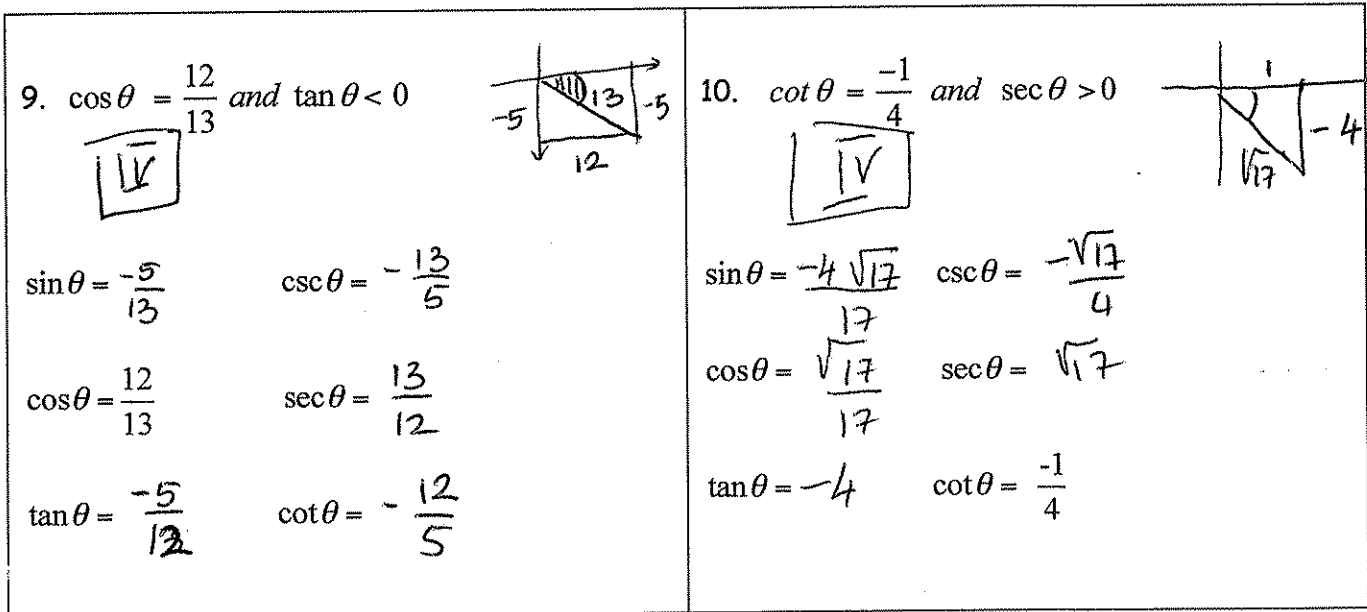 9. cos θ = 12/13 and tan θ < 0
IV
-5 13 -5
12
sin θ = -5/13 csc θ = -13/5
cos θ = 12/13 sec θ = 13/12
tan θ = -5/12 cot θ = -12/5
10. cot θ = -1/4 and sec θ > 0
IV
1
-4
√17
sin θ = -4√17/17 csc θ = -√17/4
cos θ = √17/17 sec θ = √17
tan θ = -4 cot θ = -1/4